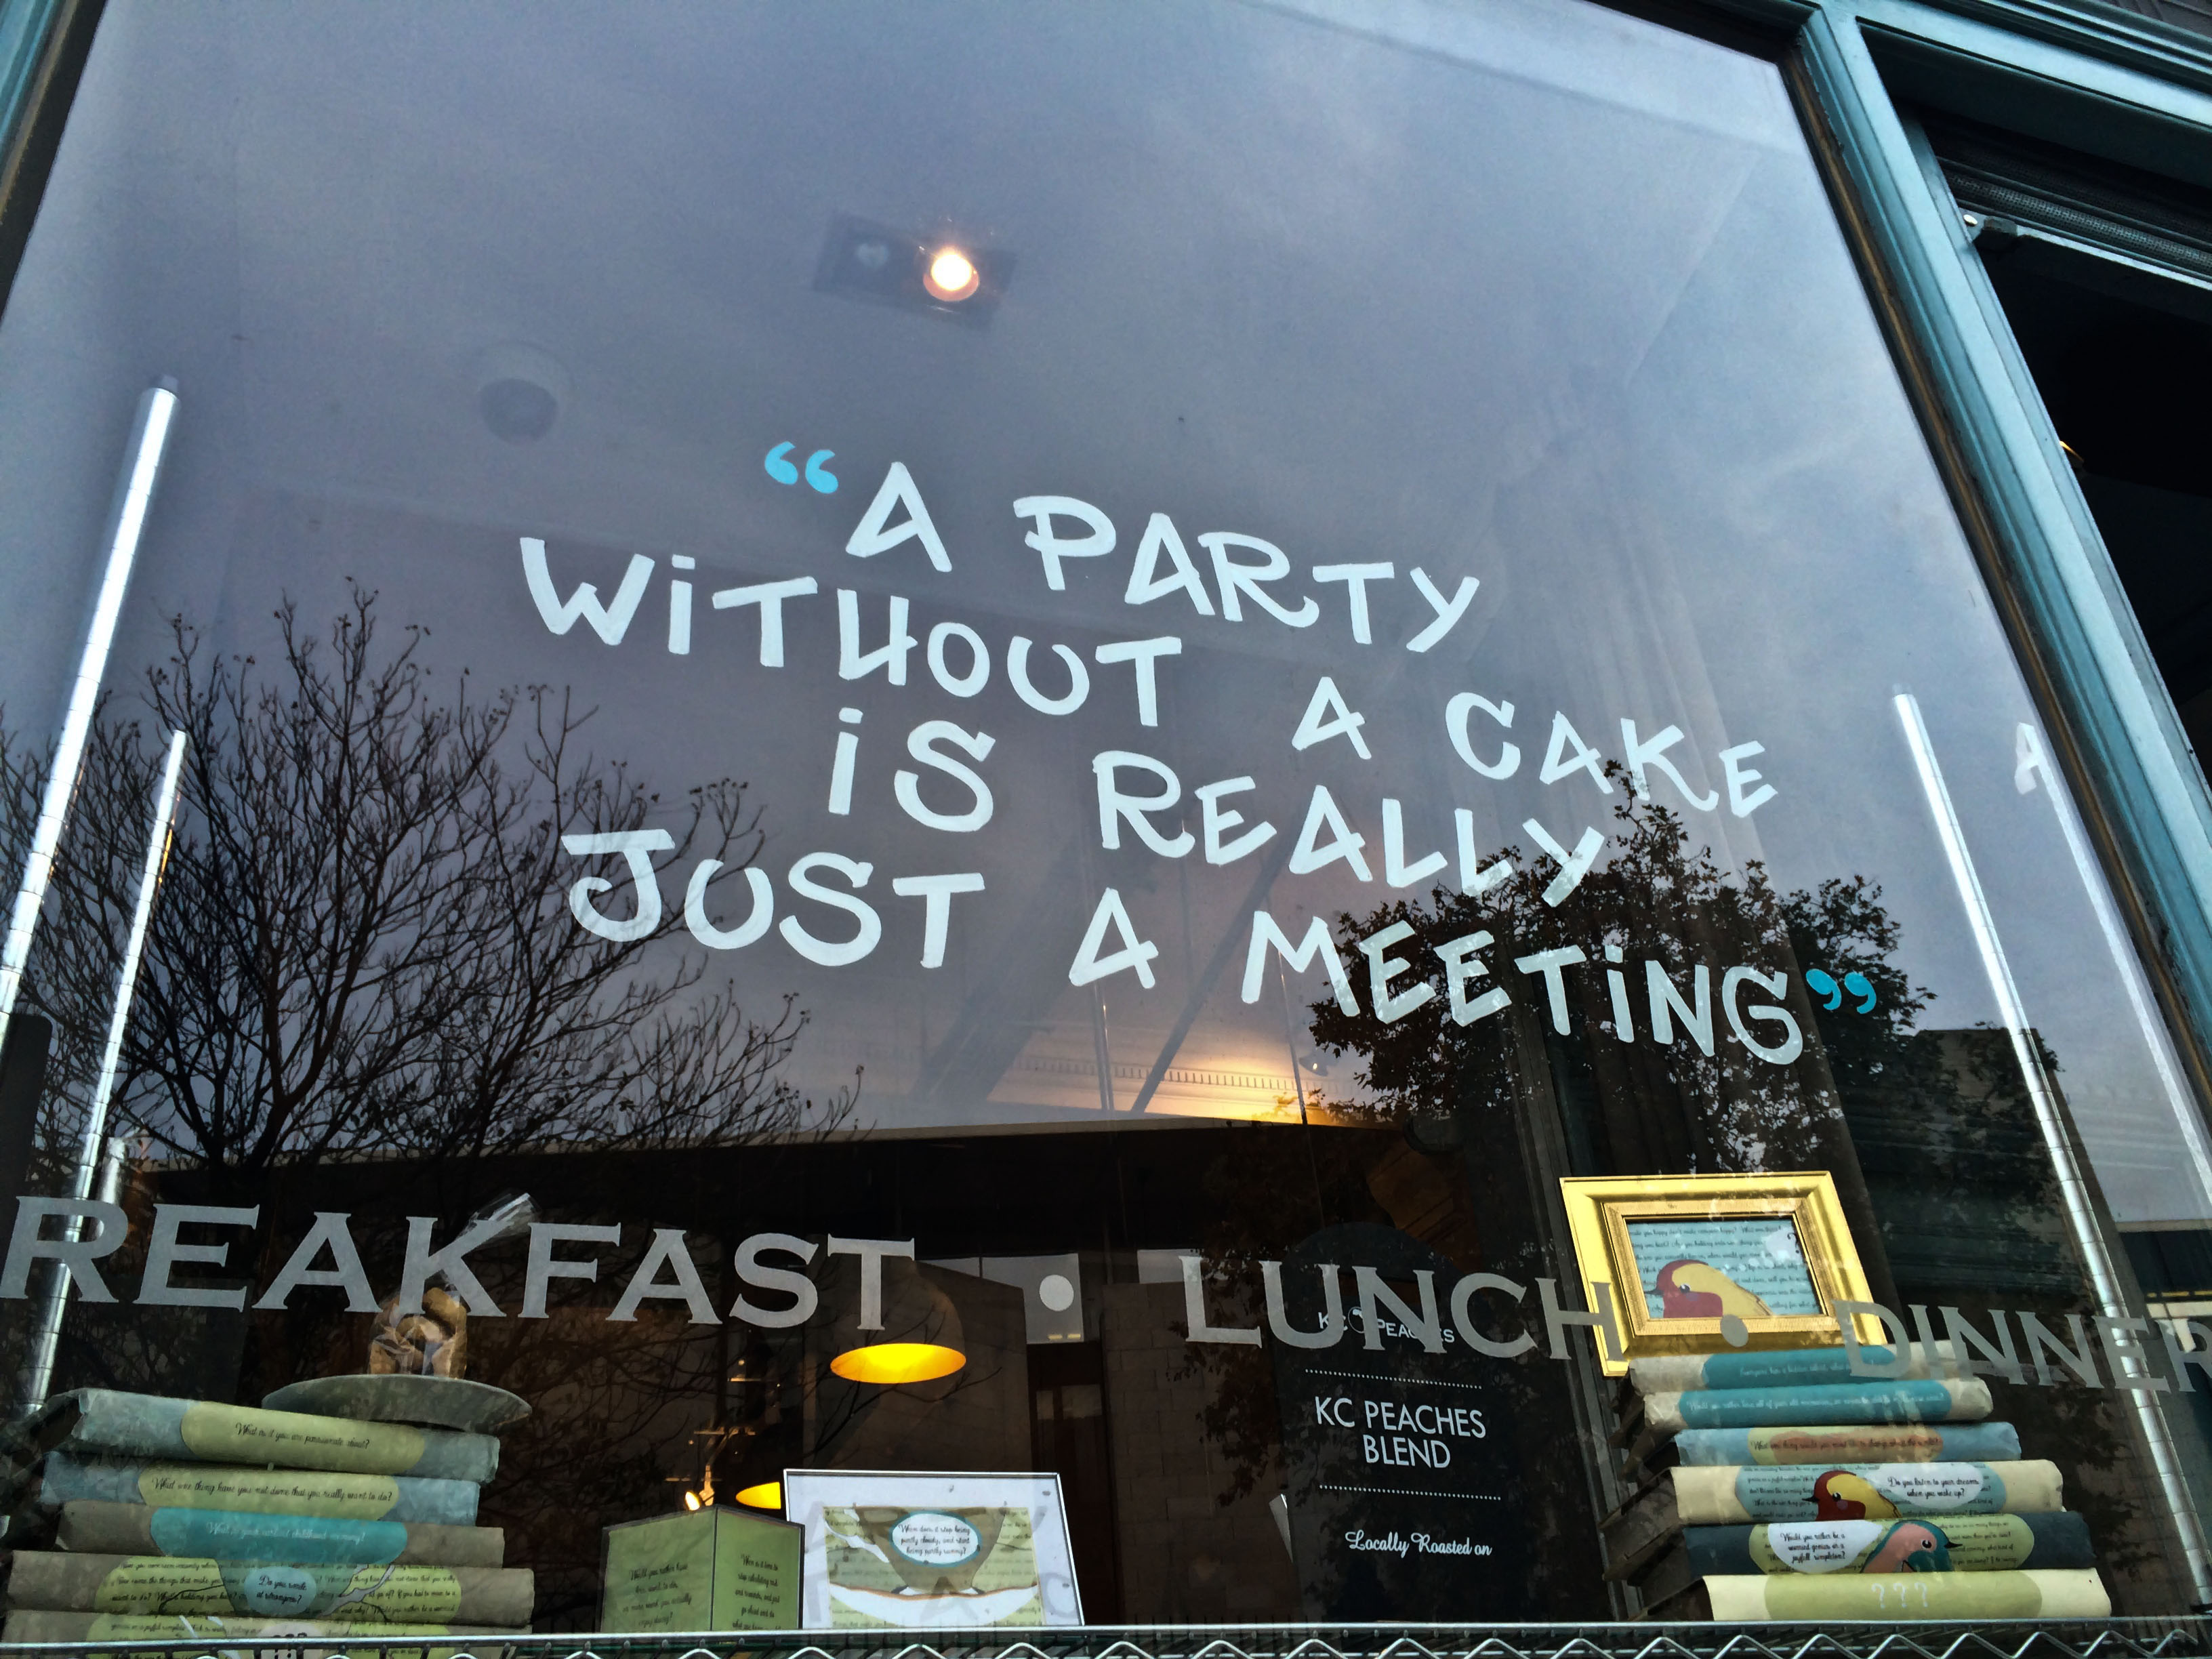 “A PARTY
WiTHOUT A CAKE
iS REALLY
JUST A MEETiNG”
REAKFAST • LUNCH • DINNER
KC PEACHES
KC PEACHES
BLEND
Locally Roasted on
What is it you are passionate about?
What one thing have you not done that you really want to do?
What is your earliest childhood memory?
Do you smile
at strangers?
When does it stop being
partly cloudy, and start
being partly sunny?
Do you listen to your dreams
when you wake up?
Would you rather be a
worried genius or a
joyful simpleton?
???